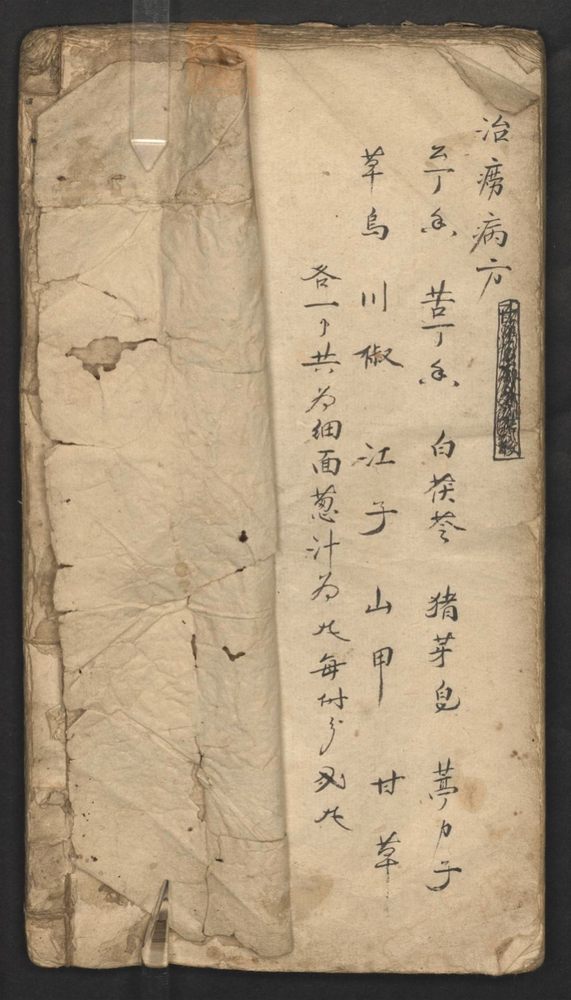 治痨病方
公丁香 苦丁香 白茯苓 猪芽皂 葶力子
草烏 川椒 江子 山甲 甘草
各一 共为细面葱汁为丸每付 丸